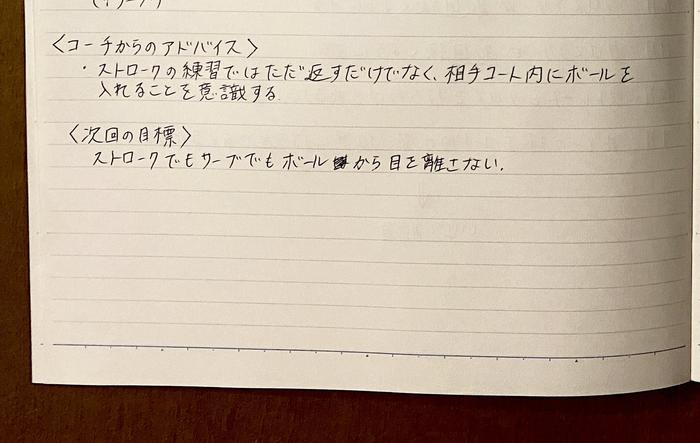 〈コーチからのアドバイス〉
・ストロークの練習ではただ返すだけでなく、相手コート内にボールを
入れることを意識する
〈次回の目標〉
ストロークでもサーブでもボールから目を離さない.